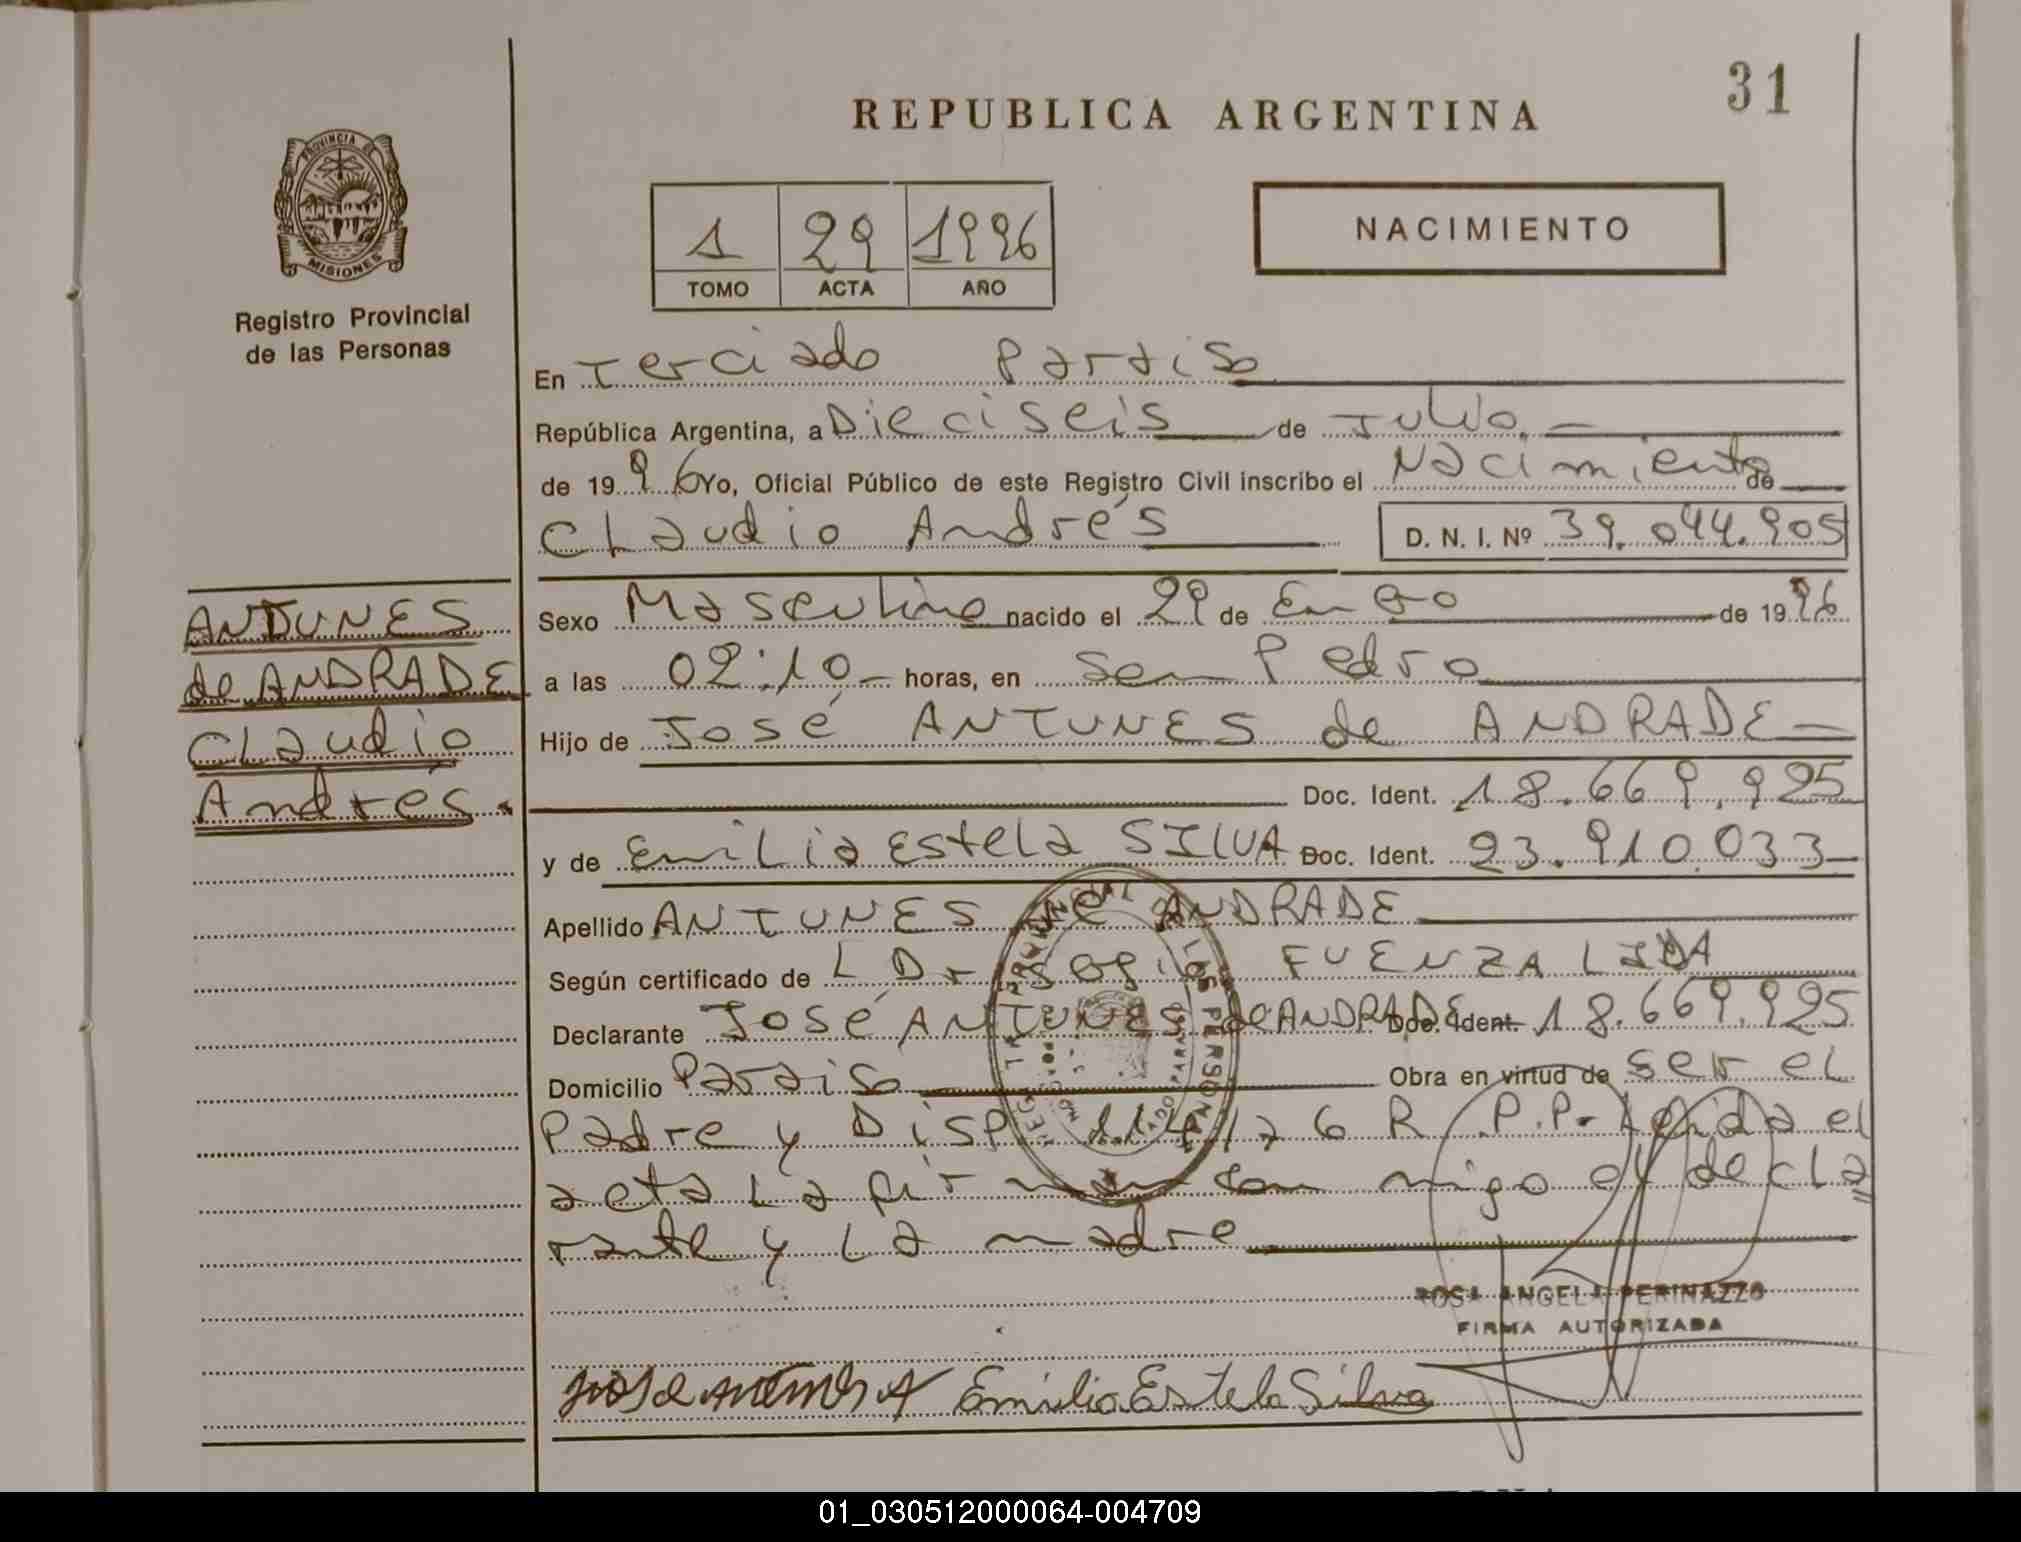 31
REPUBLICA ARGENTINA
PROVINCIA DE
MISIONES
Registro Provincial
de las Personas
1 29 1996
TOMO ACTA AÑO
NACIMIENTO
En Terciado Paraiso
República Argentina, a Dieciseis de Julio.-
de 1996 Yo, Oficial Público de este Registro Civil inscribo el Nacimiento de
Claudio Andrés D. N. I. Nº 39.044.905
ANTUNES
de ANDRADE
Claudio
Andrés.
Sexo Masculino nacido el 29 de Enero de 1996
a las 02:10- horas, en San Pedro
Hijo de José ANTUNES de ANDRADE-
Doc. Ident. 18.669.925
y de Emilia Estela SILVA Doc. Ident. 23.910.033
Apellido ANTUNES de ANDRADE
Según certificado de L Dr FUENZALIDA
Declarante José ANTUNES de ANDRADE Doc. Ident. 18.669.925
Domicilio Paraiso Obra en virtud de ser el
Padre y Disp. 114/76 R.P.P.- Leida el
acta La firman con migo el decla=
rante y La madre
ROSA ANGELA PERINAZZO
FIRMA AUTORIZADA
José Antunes A Emilia Estela Silva
01_030512000064-004709